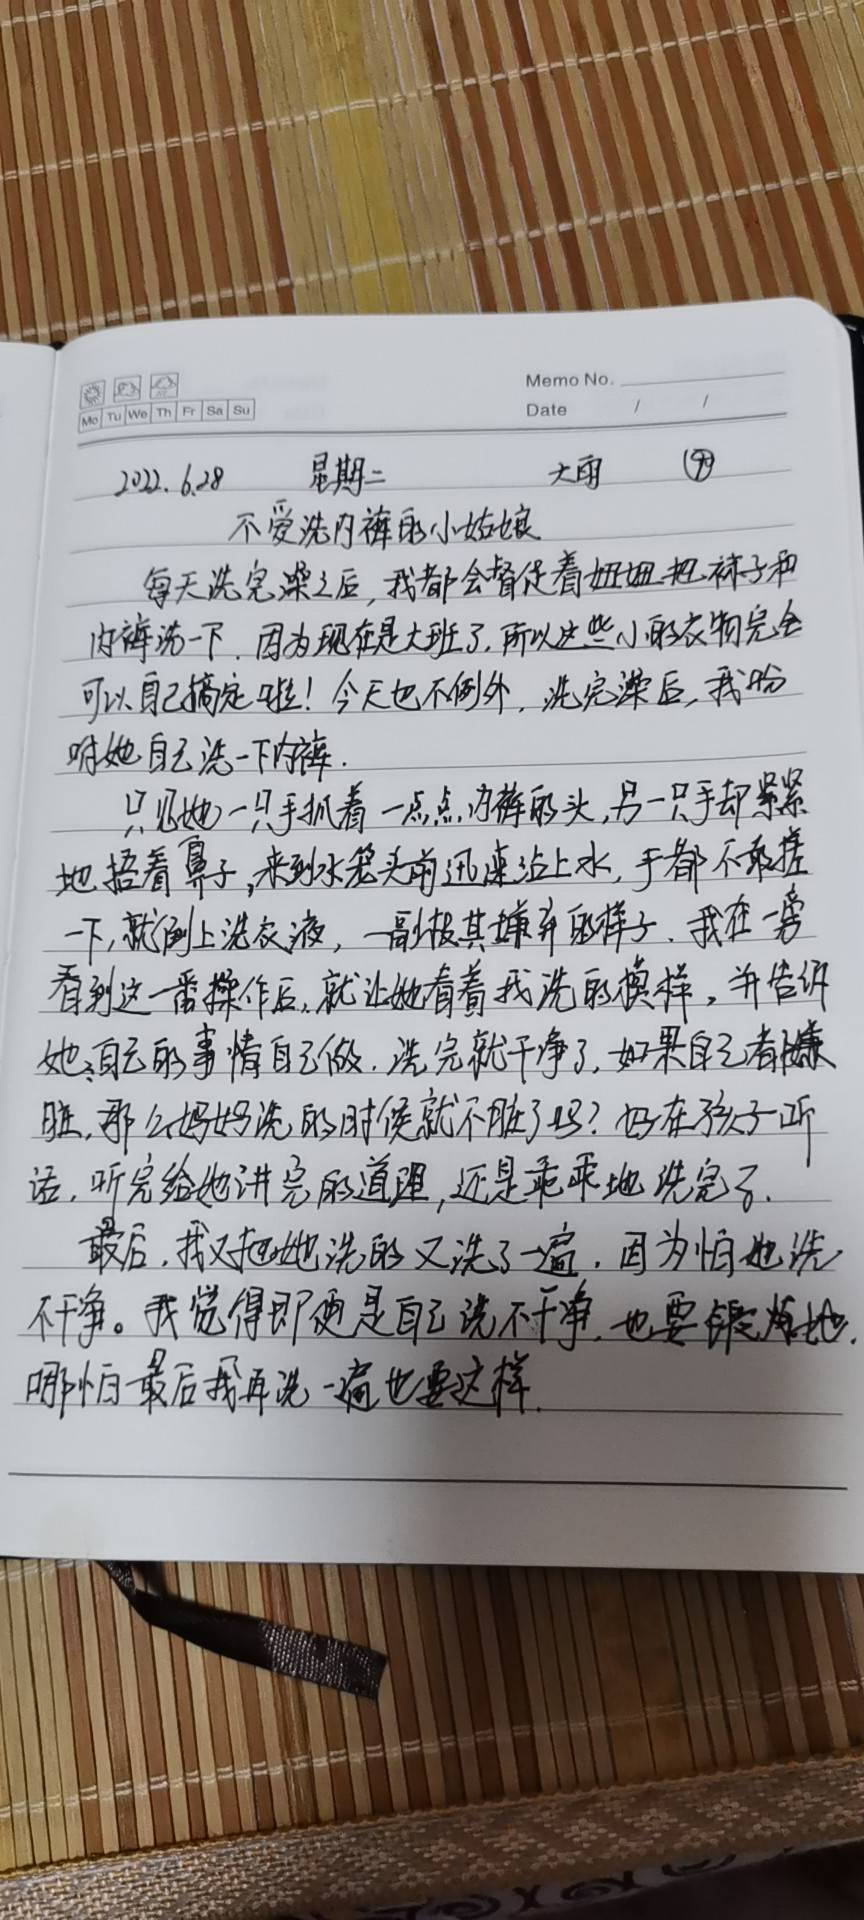 Memo No.
Mo Tu We Th Fr Sa Su
Date / /
2022.6.28 星期二 大雨
不爱洗内裤的小姑娘
每天洗完澡之后,我都会督促着妞妞把袜子和
内裤洗一下.因为现在是大班了,所以这些小的衣物完全
可以自己搞定啦!今天也不例外,洗完澡后,我吩
咐她自己洗一下内裤.
只见她一只手抓着一点点内裤的头,另一只手却紧紧
地捂着鼻子,来到水笼头前迅速沾上水,手都不敢搓
一下,就倒上洗衣液,一副极其嫌弃的样子.我在一旁
看到这一番操作后,就让她看着我洗的模样,并告诉
她:自己的事情自己做.洗完就干净了,如果自己都嫌
脏,那么妈妈洗的时候就不脏了吗?好在孩子听
话,听完给她讲完的道理,还是乖乖地洗完了.
最后,我又把她洗的又洗了一遍,因为怕她洗
不干净。我觉得即便是自己洗不干净,也要锻炼她,
哪怕最后我再洗一遍也要这样.